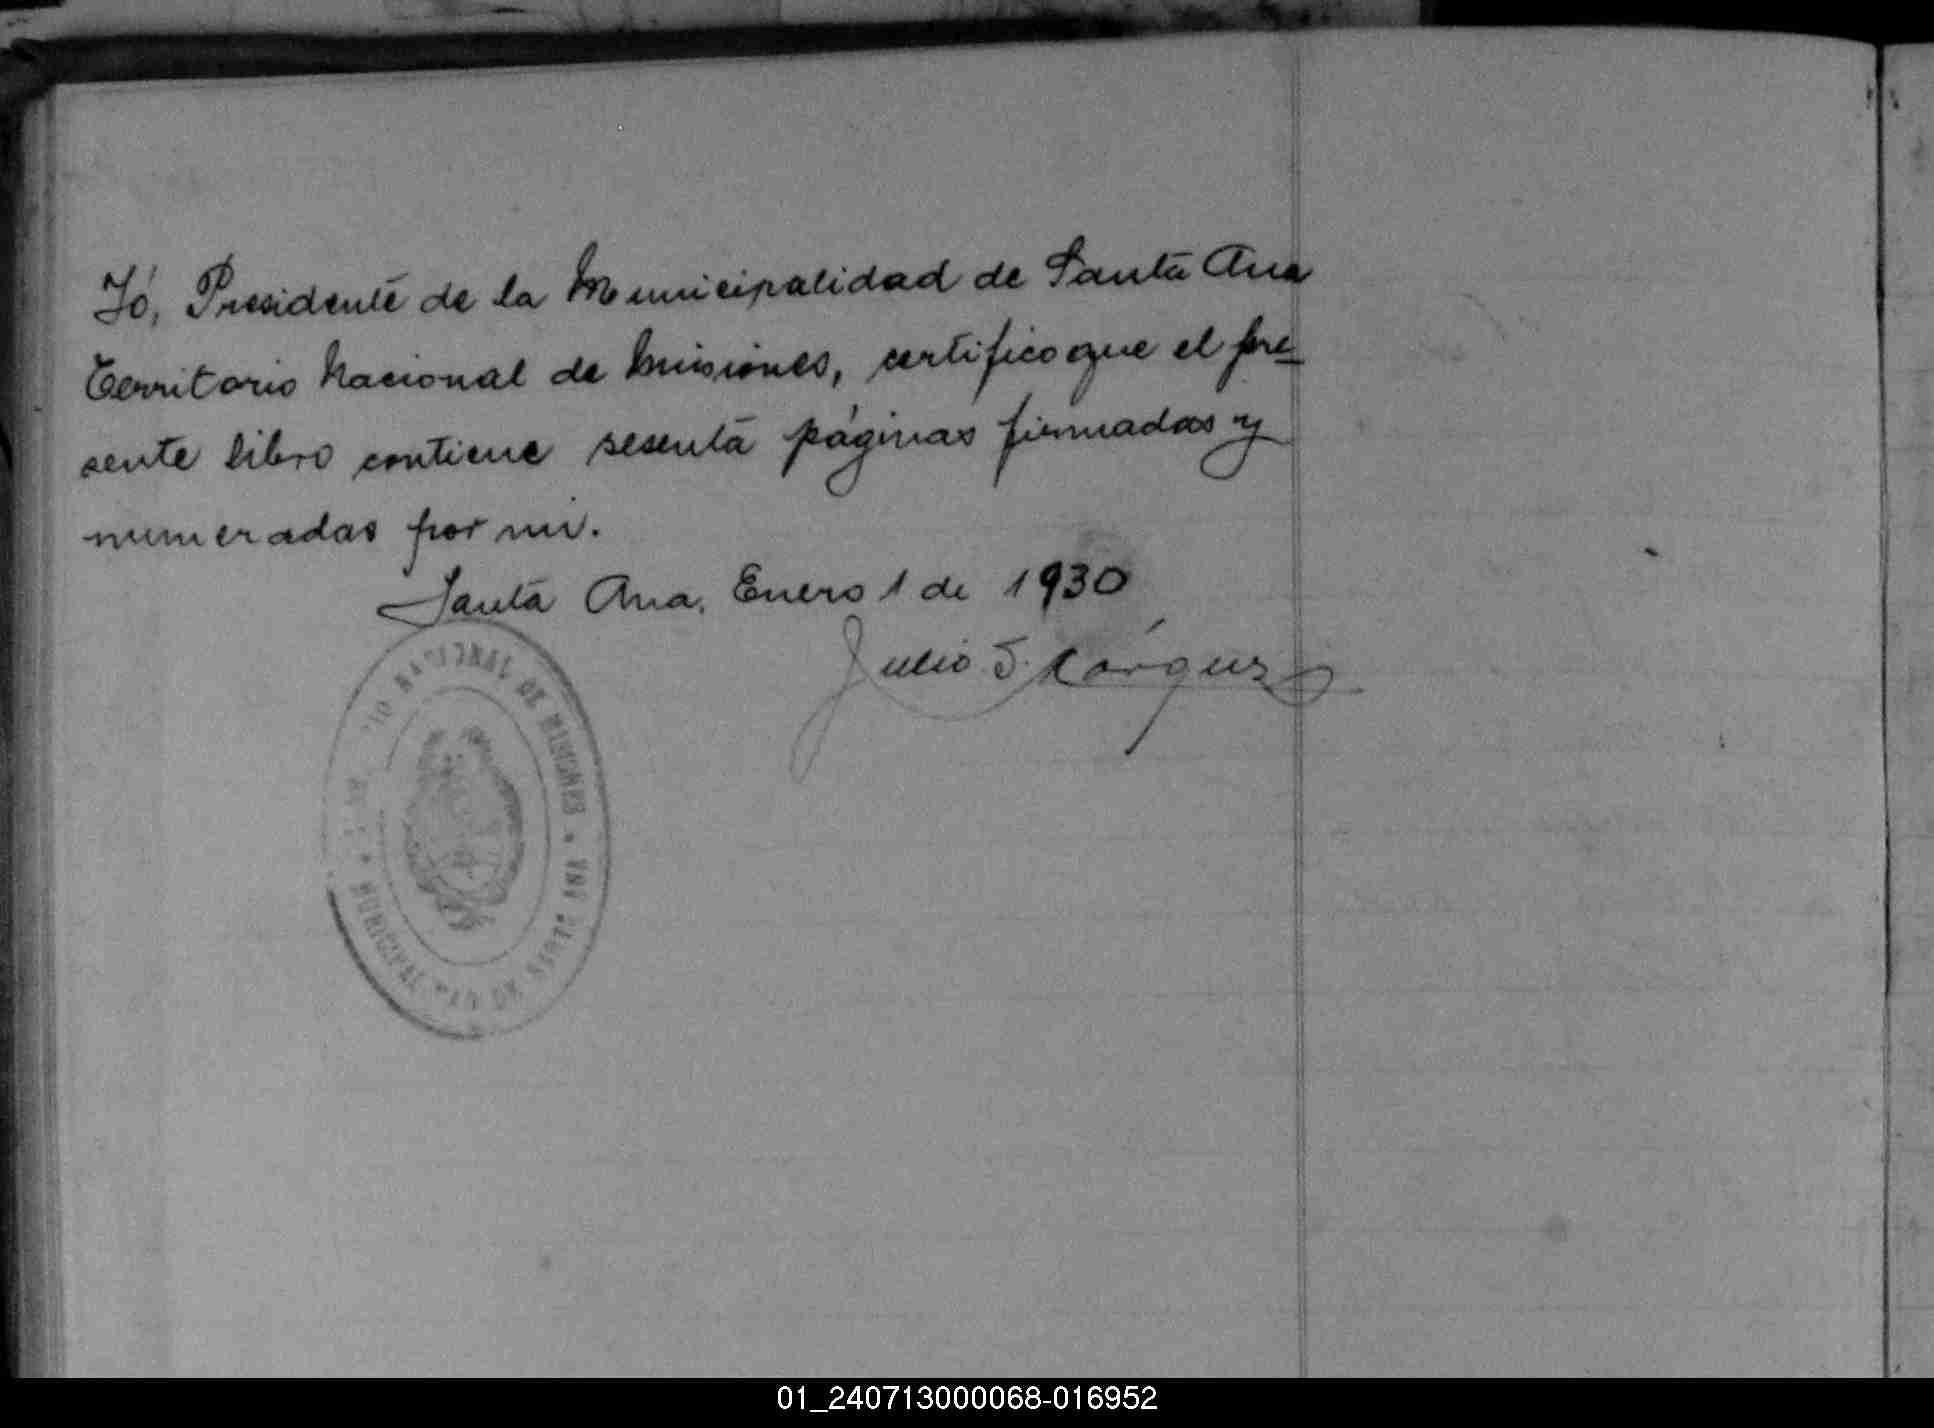 Yó, Presidente de la Municipalidad de Santa Ana
Territorio Nacional de Misiones, certifico que el pre-
sente libro contiene sesenta páginas firmadas y
numeradas por mi.
Santa Ana, Enero 1 de 1930
Julio S. Márquez
NACIONAL DE MISIONES • SANTA ANA
MUNICIPAL
01_240713000068-016952